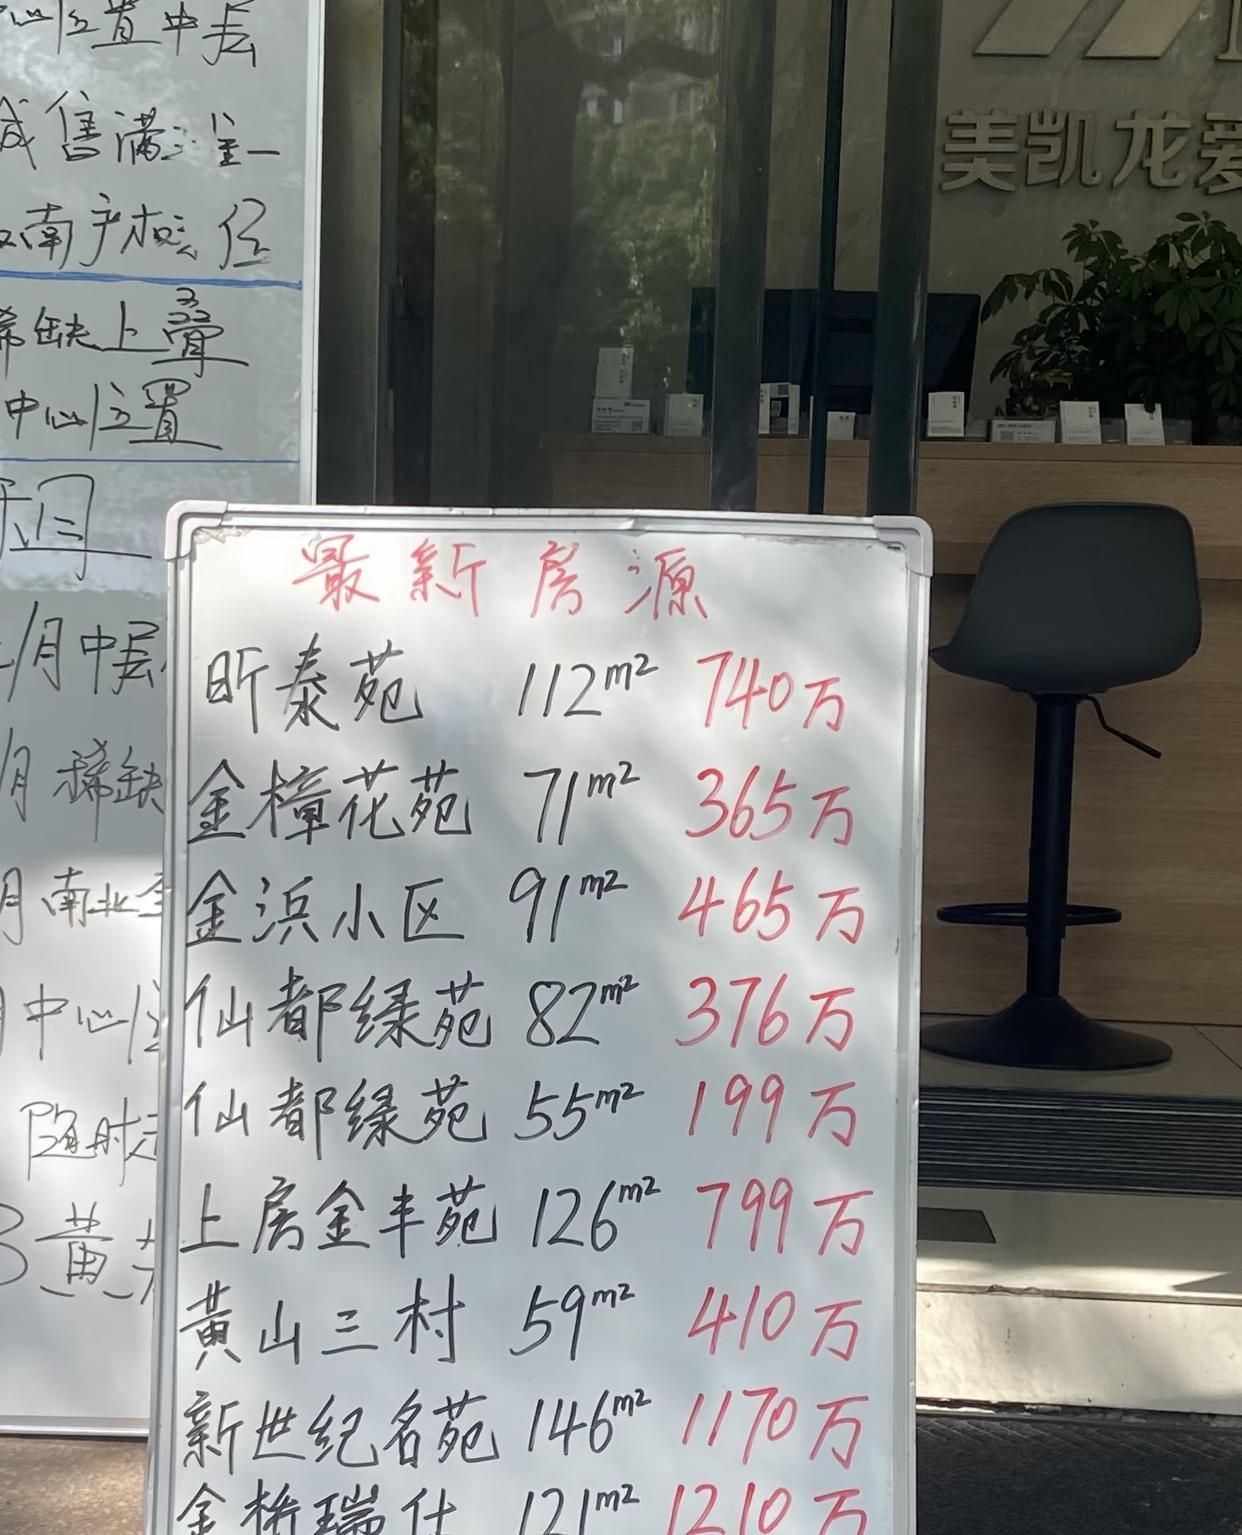 心位置中层
减售满
南
稀缺上叠
中心位置
月中层
月稀缺
月南北
中心位
随时
黄
美凯龙爱
最新房源
昕泰苑 112m² 740万
金樟花苑 71m² 365万
金浜小区 91m² 465万
仙都绿苑 82m² 376万
仙都绿苑 55m² 199万
上房金丰苑 126m² 799万
黄山三村 59m² 410万
新世纪名苑 146m² 1170万
金桥瑞仕 121m² 1210万